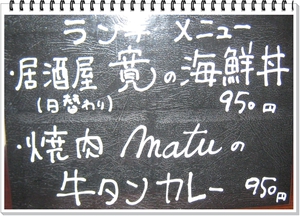 ランチ メニュー
・居酒屋 寛の海鮮丼
(日替わり) 950円
・焼肉 matuの
牛タンカレー 950円